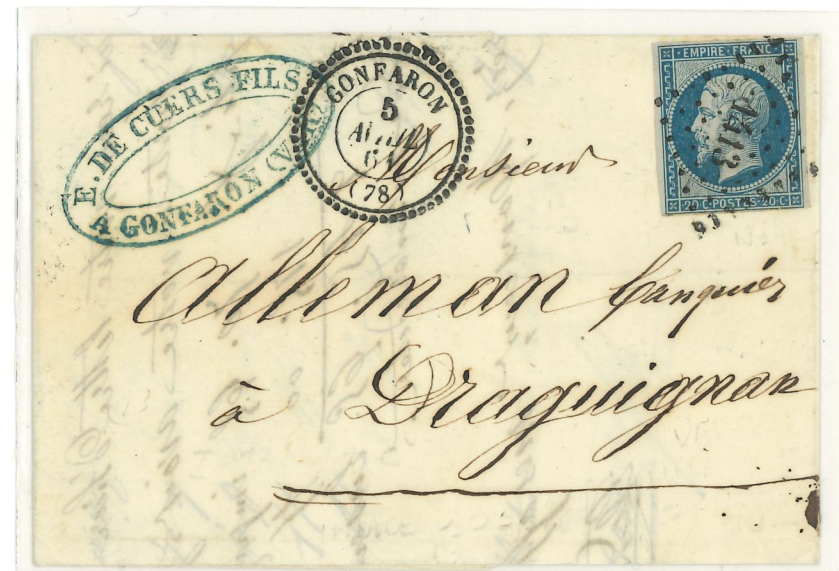 E. DE CUERS FILS
A GONFARON (VAR)
GONFARON
5
(78)
EMPIRE FRANC
20 C · POSTES · 20 C
Monsieur
Alleman banquier
à Draguignan